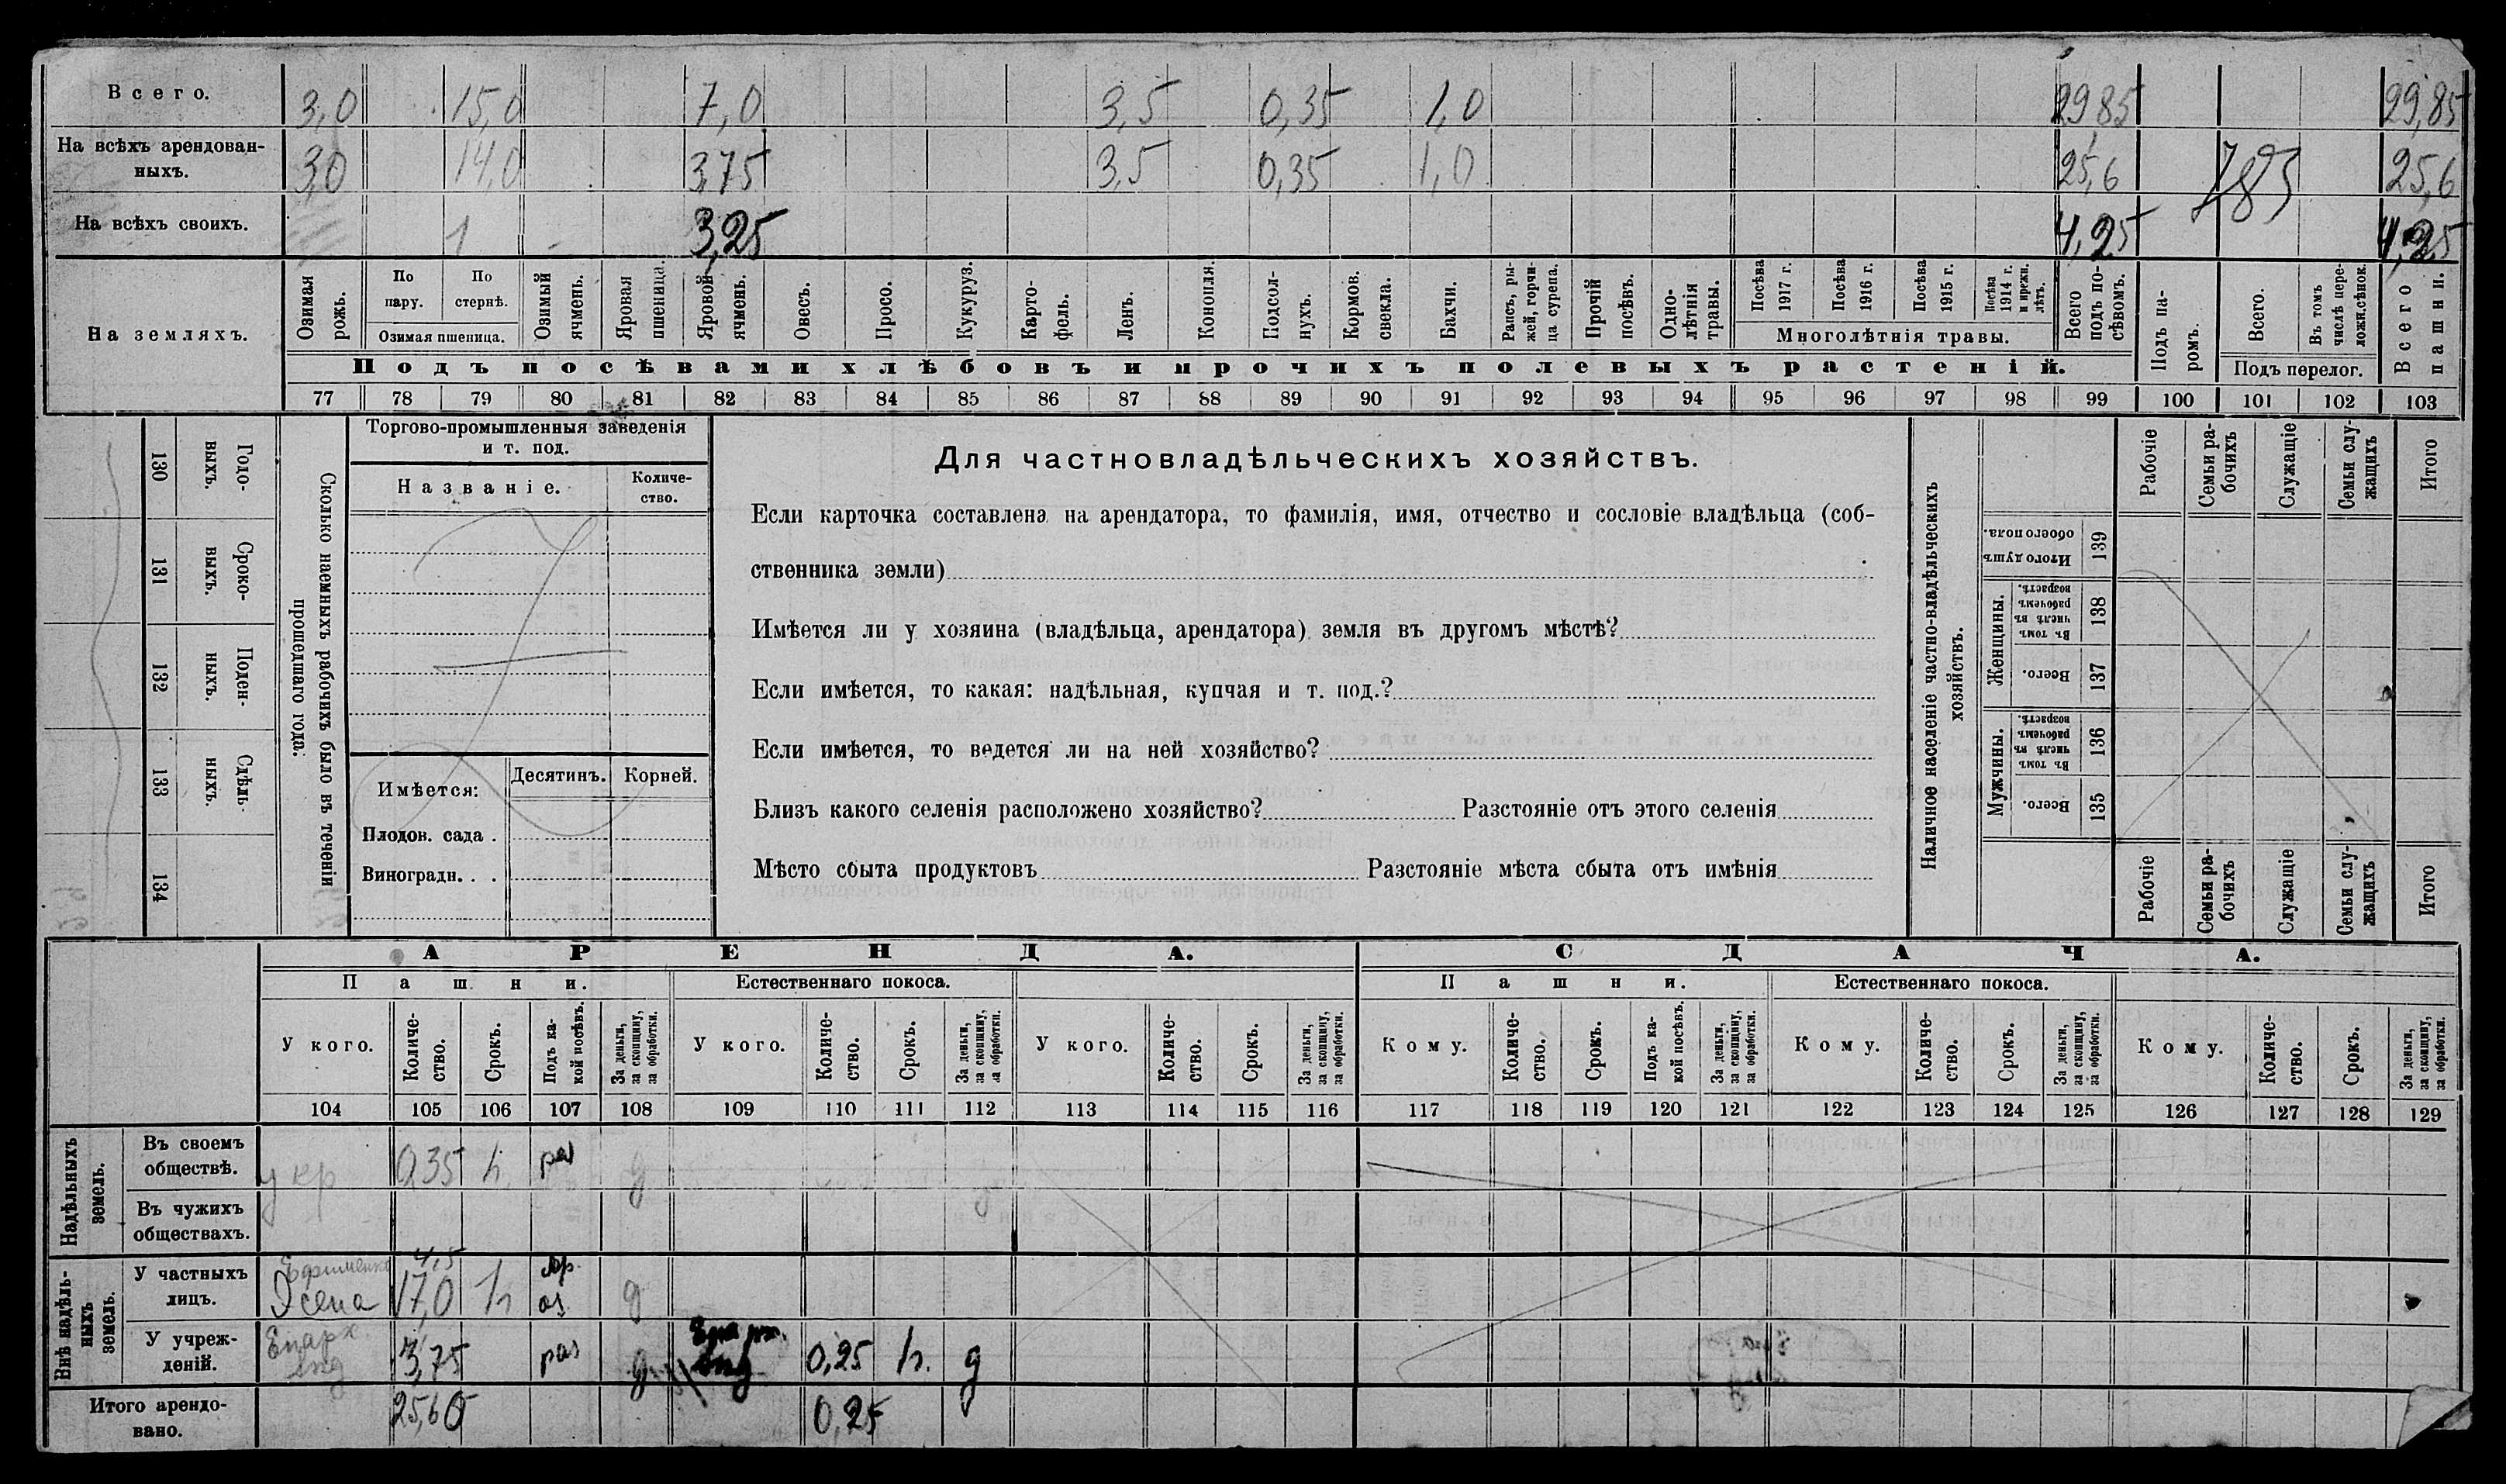 Всего. 3,0 15,0 7,0 3,5 0,35 1,0 29,85 29,85
На всѣхъ арендован-
ныхъ. 3,0 14,0 3,75 3,5 0,35 1,0 25,6 25,6
На всѣхъ своихъ. 1 3,25 4,25 4,25
На земляхъ.
Озимая рожь.
По пару.
По стернѣ.
Озимая пшеница.
Озимый ячмень.
Яровая пшеница.
Яровой ячмень.
Овесъ.
Просо.
Кукуруз.
Карто-
фель.
Ленъ.
Конопля.
Подсол-
нухъ.
Кормов. свекла.
Бахчи.
Рапсъ, ры-
жей, горчи-
ца сурепа.
Прочій посѣвъ.
Одно-
лѣтнія травы.
Посѣва 1917 г.
Посѣва 1916 г.
Посѣва 1915 г.
Посѣва 1914 г. и прежн. лѣтъ.
Многолѣтнія травы.
Всего подъ по-
сѣвомъ.
Подъ па-
ромъ.
Всего.
Въ томъ числѣ пере-
ложн.сѣнок.
Подъ перелог.
Всего пашни.
Подъ посѣвами хлѣбовъ и прочихъ полевыхъ растеній.
77 78 79 80 81 82 83 84 85 86 87 88 89 90 91 92 93 94 95 96 97 98 99 100 101 102 103
130 Годо-
ныхъ.
131 Сроко-
выхъ.
132 Поден-
ныхъ.
133 Сдѣль-
ныхъ.
134
Сколько наемныхъ рабочихъ было въ теченіи
прошедшаго года.
Торгово-промышленныя заведенія
и т. под.
Названіе. Количе-
ство.
Имѣется: Десятинъ. Корней.
Плодов. сада .
Виноградн. . .
Для частновладѣльческихъ хозяйствъ.
Если карточка составлена на арендатора, то фамилія, имя, отчество и сословіе владѣльца (соб-
ственника земли)
Имѣется ли у хозяина (владѣльца, арендатора) земля въ другомъ мѣстѣ?
Если имѣется, то какая: надѣльная, купчая и т. под.?
Если имѣется, то ведется ли на ней хозяйство?
Близъ какого селенія расположено хозяйство? Разстояніе отъ этого селенія
Мѣсто сбыта продуктовъ Разстояніе мѣста сбыта отъ имѣнія
Наличное населеніе частно-владѣльческихъ
хозяйствъ.
Рабочіе
Семьи ра-
бочихъ
Служащіе
Семьи слу-
жащихъ
Итого
Итого душъ обоего пола. 139
Женщины.
Въ томъ числѣ въ рабочемъ возрастѣ. 138
Всего. 137
Мужчины.
Въ томъ числѣ въ рабочемъ возрастѣ. 136
Всего. 135
Рабочіе
Семьи ра-
бочихъ
Служащіе
Семьи слу-
жащихъ
Итого
АРЕНДА. СДАЧА.
Пашни. Естественнаго покоса. Пашни. Естественнаго покоса.
У кого.
Количе-
ство.
Срокъ.
Подъ ка-
кой посѣвъ.
За деньги, за скопщину, за обработки.
У кого.
Количе-
ство.
Срокъ.
За деньги, за скопщину, за обработки.
У кого.
Количе-
ство.
Срокъ.
За деньги, за скопщину, за обработки.
Кому.
Количе-
ство.
Срокъ.
Подъ ка-
кой посѣвъ.
За деньги, за скопщину, за обработки.
Кому.
Количе-
ство.
Срокъ.
За деньги, за скопщину, за обработки.
Кому.
Количе-
ство.
Срокъ.
За деньги, за скопщину, за обработки.
104 105 106 107 108 109 110 111 112 113 114 115 116 117 118 119 120 121 122 123 124 125 126 127 128 129
Надѣльныхъ земель.
Въ своемъ
обществѣ. у кр 0,35 раз д
Въ чужихъ
обществахъ.
Внѣ надѣль-
ныхъ земель.
У частныхъ
лицъ. Ефименко 4,5 17,0 яр. оз д
У учреж-
деній. Епарх. 3,75 раз д 0,25 д
Итого арендо-
вано. 25,60 0,25